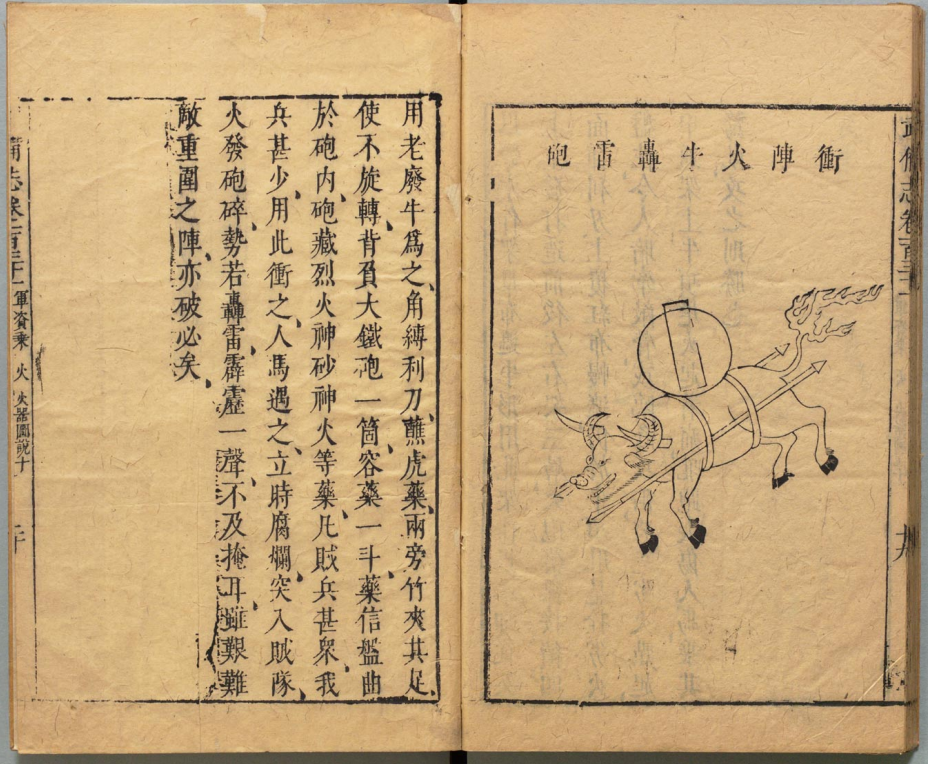 武備志卷一百三十一
衝陣火牛轟雷砲
用老廢牛爲之角縛利刀蘸虎藥兩旁竹夾其足
使不旋轉背負大鐵砲一箇容藥一斗藥信盤曲
於砲内砲藏烈火神砂神火等藥凡賊兵甚衆我
兵甚少用此衝之人馬遇之立時腐爛突入賊隊
火發砲碎勢若轟雷霹靂一聲不及掩耳雖艱難
敵重圍之陣亦破必矣
備志卷一百三十一 軍資乘 火 火器圖說十